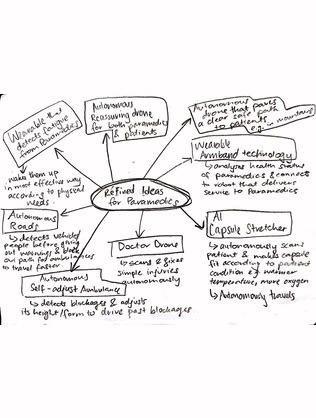 Wearable that
detects fatigue
from Paramedics
↳ wake them up
in most effective way
according to physical
needs.
Autonomous
Reassuring drone for
for both paramedics
& patients
Autonomous
drone that paves
a clear safe path
to patients
e.g. in mountains
Wearable
Armband technology
↳ analyses health status
of paramedics & connects
to robot that delivers
service to Paramedics
Refined Ideas
for Paramedics
Autonomous
Roads
↳ detects vehicles/
people before giving
out warnings & block
out path for ambulances
to travel faster
Doctor Drone
↳ scans & fixes
simple injuries
autonomously
AI
Capsule Stretcher
↳ autonomously scans
patient & makes capsule
fit according to patient
condition e.g.
temperature, more oxygen
↳ Autonomously travels
Autonomous
Self-adjust Ambulance
↳ detects blockages & adjusts
its height/form to drive past blockages